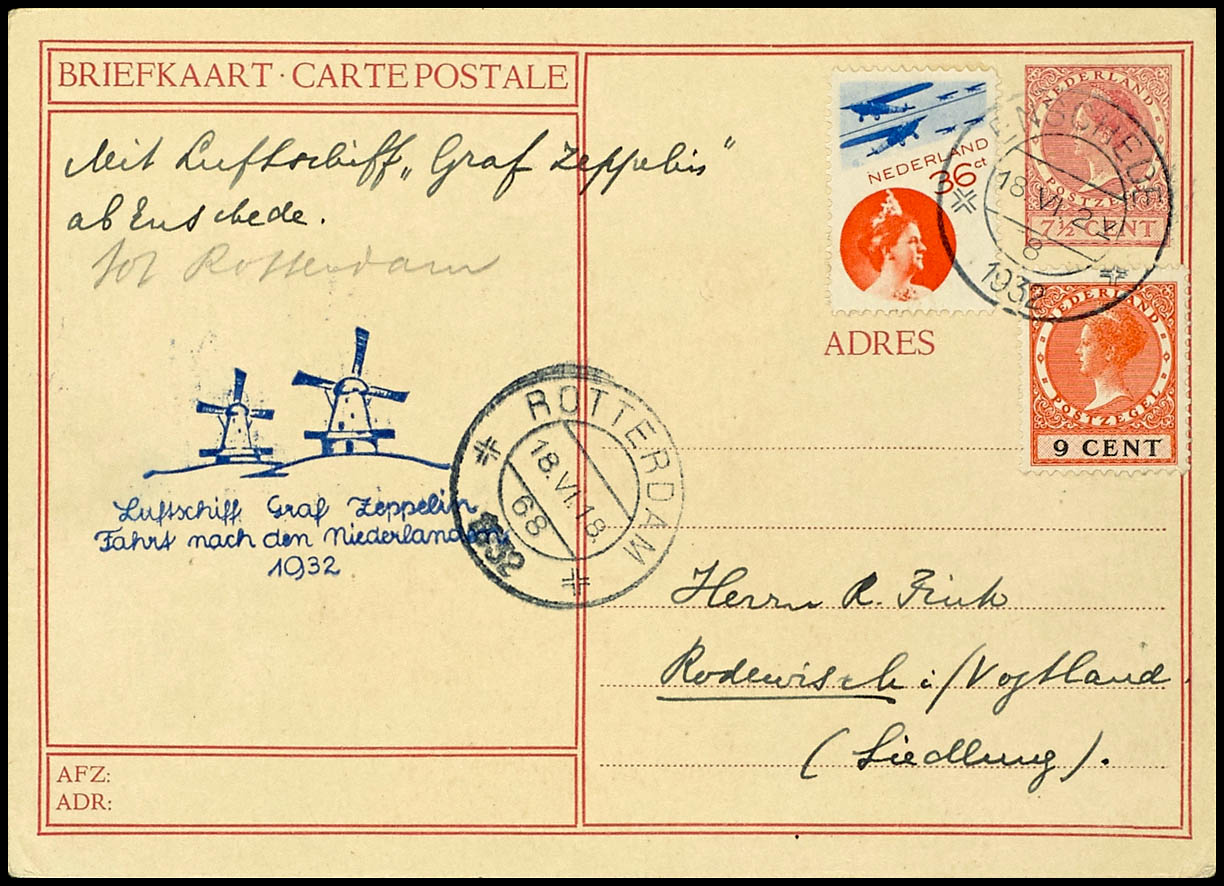 BRIEFKAART · CARTE POSTALE
Mit Luftschiff „Graf Zeppelin"
ab Enschede.
tot Rotterdam
Luftschiff Graf Zeppelin
Fahrt nach den Niederlanden
1932
ROTTERDAM
18.VI.18.
68
1932
NEDERLAND
36 ct
NEDERLAND
POSTZEGEL
7½ CENT
ENSCHEDE
18.VI.2
8
1932
ADRES
NEDERLAND
POSTZEGEL
9 CENT
Herrn R.
Rodewisch i/Vogtland.
(Siedlung).
AFZ:
ADR: